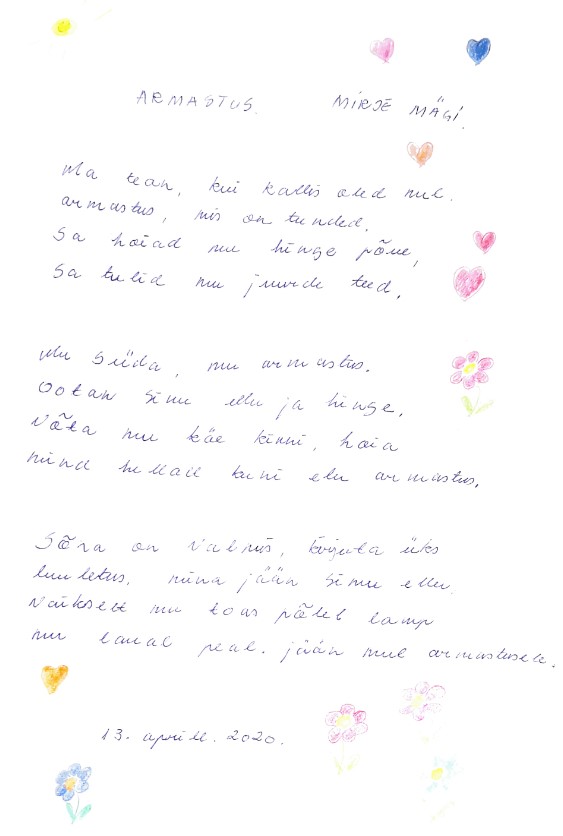 ARMASTUS. MIRJE MÄGI.
Ma tean, kui kallis oled mul.
armastus, mis on tunded.
Sa hoiad mu hinge põue,
Sa tulid mu juurde teed.
Mu Süda, mu armastus.
Ootan Sinu ellu ja hinge.
Võta mu käe kinni, hoia
mind hellalt kuni elu armastus.
Sõna on valmis, kirjuta üks
luuletus. mina jään Sinu ellu.
Väikselt mu toas põleb lamp
mu laual peal. jään mul armastusele.
13. aprill. 2020.